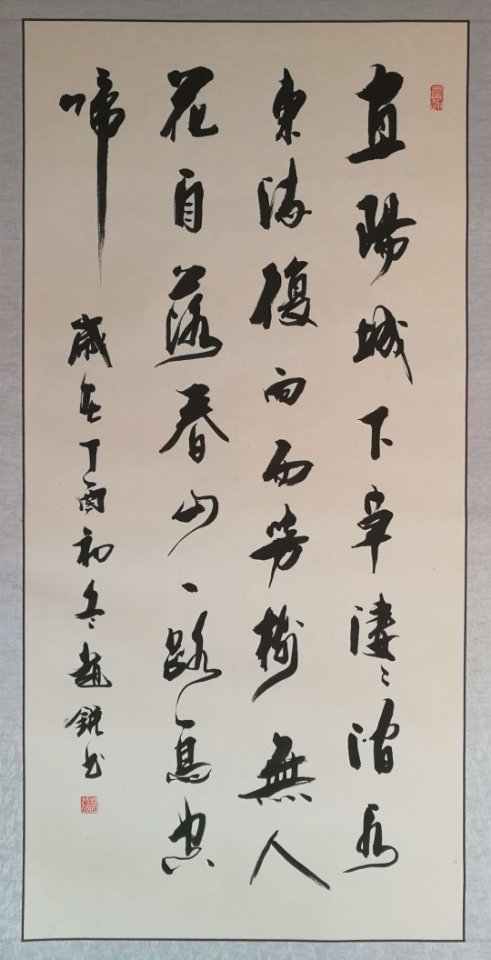 宜陽城下草淒〻澗水
東流復向西芳樹無人
花自落春山一路鳥空
啼
歲在丁酉初冬趙銳書